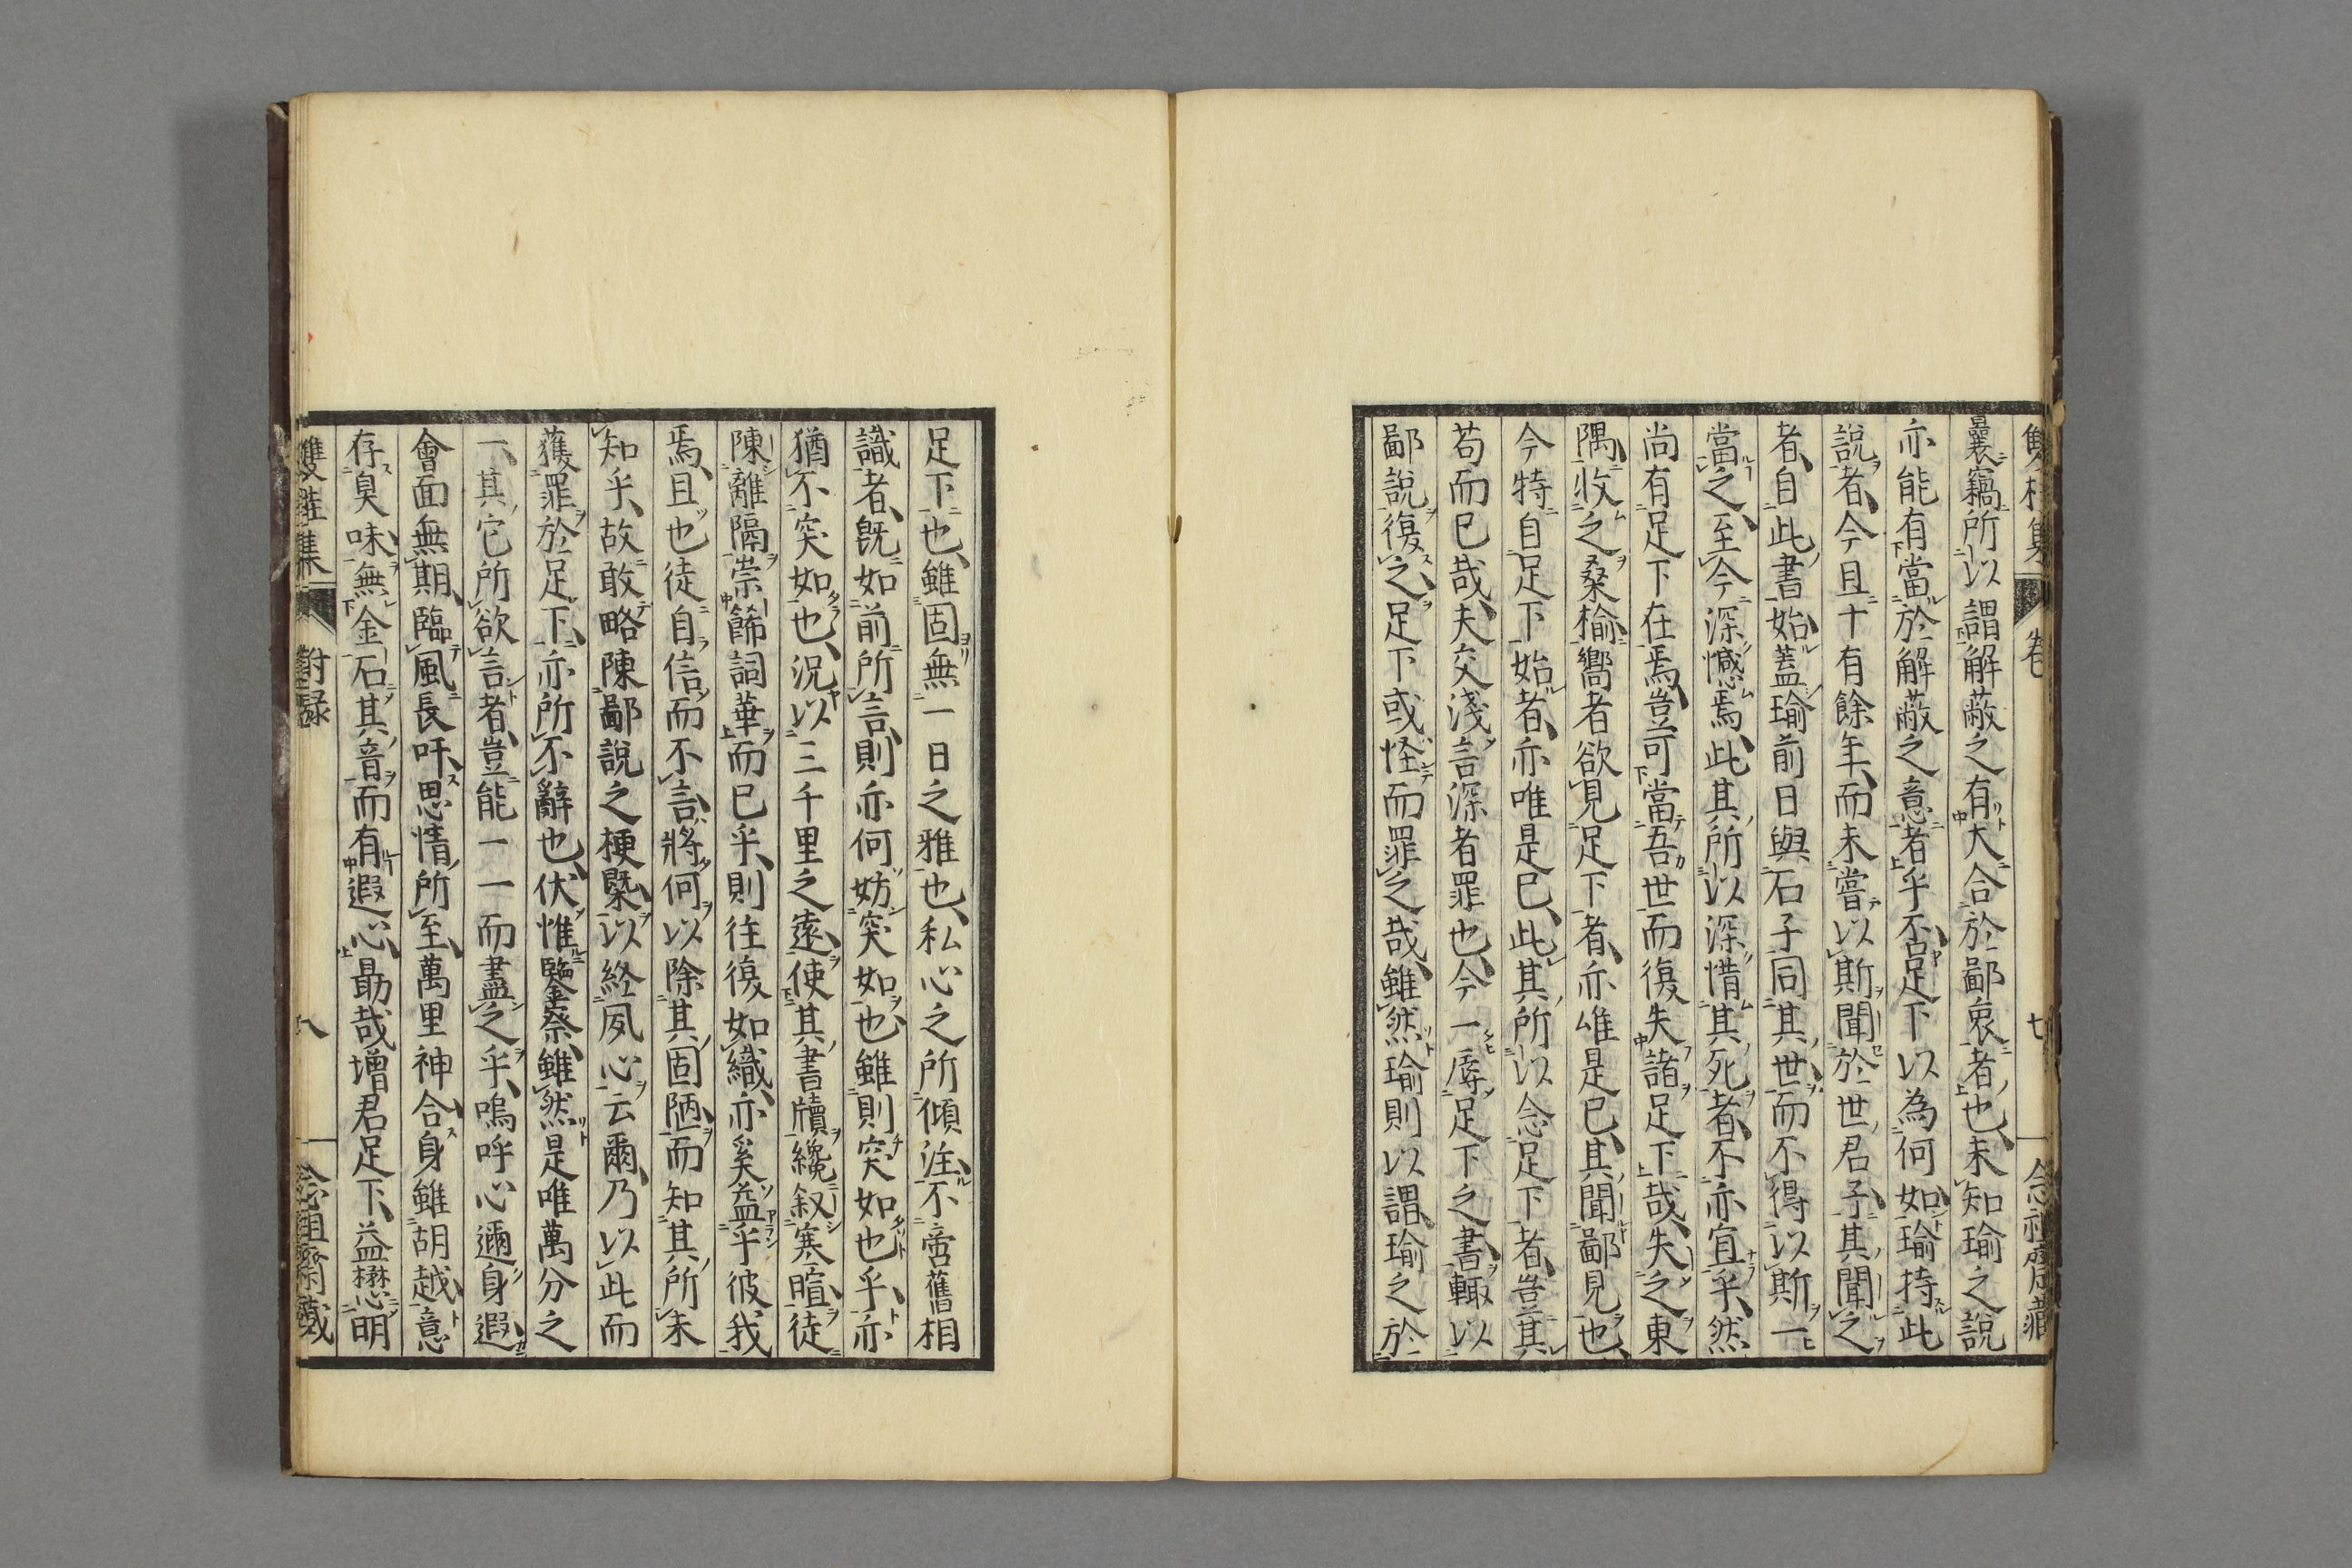 曩竊所以謂解蔽之有大合於鄙衷者也未知瑜之說
亦能有當於解蔽之意者乎不足下以為何如瑜持此
說者今且十有餘年而未嘗以斯聞於世君子其聞之
者自此書始蓋瑜前日與石子同其世而不得以斯一
當之至今深憾焉此其所以深惜其死者不亦宜乎然
尚有足下在焉豈可當吾世而復失諸足下哉失之東
隅收之桑榆嚮者欲見足下者亦唯是已其聞鄙見也
今特自足下始者亦唯是已此其所以念足下者豈其
苟而已哉夫交淺言深者罪也今一辱足下之書輙以
鄙說復之足下或怪而罪之哉雖然瑜則以謂瑜之於
足下也雖固無一日之雅也私心之所傾注不啻舊相
識者旣如前所言則亦何妨突如也雖則突如也乎亦
猶不突如也況以三千里之遠使其書牘纔叙寒暄徒
陳離隔崇餙詞華而已乎則往復如織亦奚益乎彼我
焉且也徒自信而不言將何以除其固陋而知其所未
知乎故敢略陳鄙說之梗槩以終夙心云爾乃以此而
獲罪於足下亦所不辭也伏惟鑒察雖然是唯萬分之
一其它所欲言者豈能一一而盡之乎嗚呼心邇身遐
會面無期臨風長吁思情所至萬里神合身雖胡越意
存臭味無金石其音而有遐心勗哉増君足下益懋明
附録
八